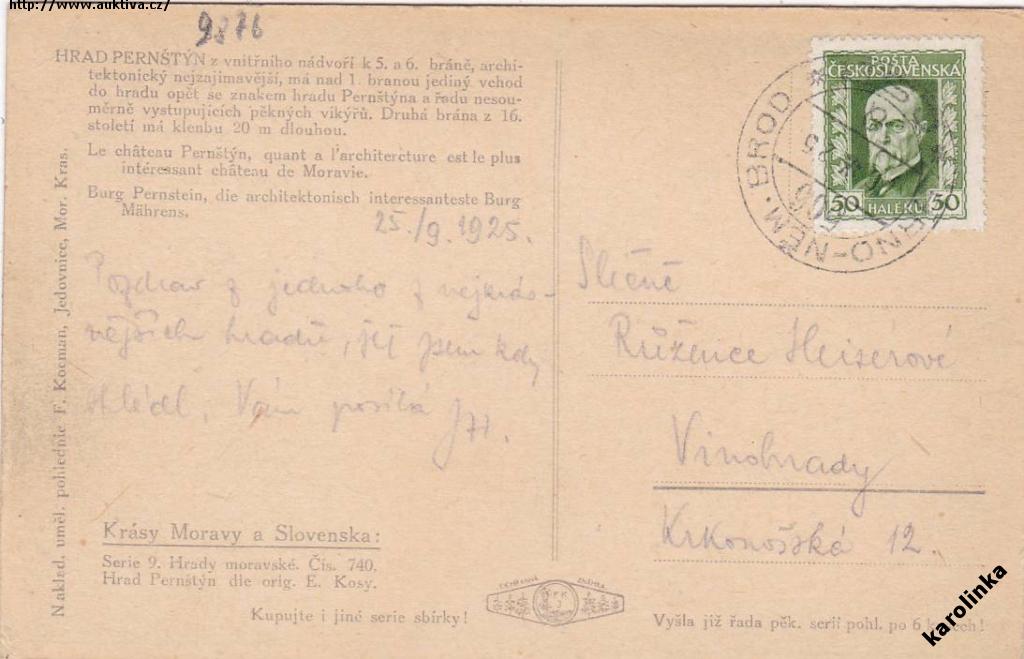 http://www.auktiva.cz/
9876
HRAD PERNŠTÝN z vnitřního nádvoří k 5. a 6. bráně, archi-
tektonický nejzajímavější, má nad 1. branou jediný vchod
do hradu opět se znakem hradu Pernštýna a řadu nesou-
měrně vystupujících pěkných vikýřů. Druhá brána z 16.
století má klenbu 20 m dlouhou.
Le château Pernštýn, quant a l'architercture est le plus
intéressant château de Moravie.
Burg Pernstein, die architektonisch interessanteste Burg
Mährens.
25./9. 1925.
Pozdrav z jednoho z nejkrás-
nějších hradů, jež jsem kdy
shlédl, Vám posílá
JH.
Krásy Moravy a Slovenska:
Serie 9. Hrady moravské. Čís. 740.
Hrad Pernštýn dle orig. E. Kosy.
Kupujte i jiné serie sbírky!
Naklad. uměl. pohlednic F. Kocman, Jedovnice, Mor. Kras.
OCHRANNÁ ZNÁMKA
POŠTA
ČESKOSLOVENSKA
50 HALÉŘŮ 50
BRNO-NĚM. BROD
Slečně
Růžence Heiserové
Vinohrady
Krkonošská 12.
Vyšla již řada pěk. serií pohl. po 6 kusech!
karolinka